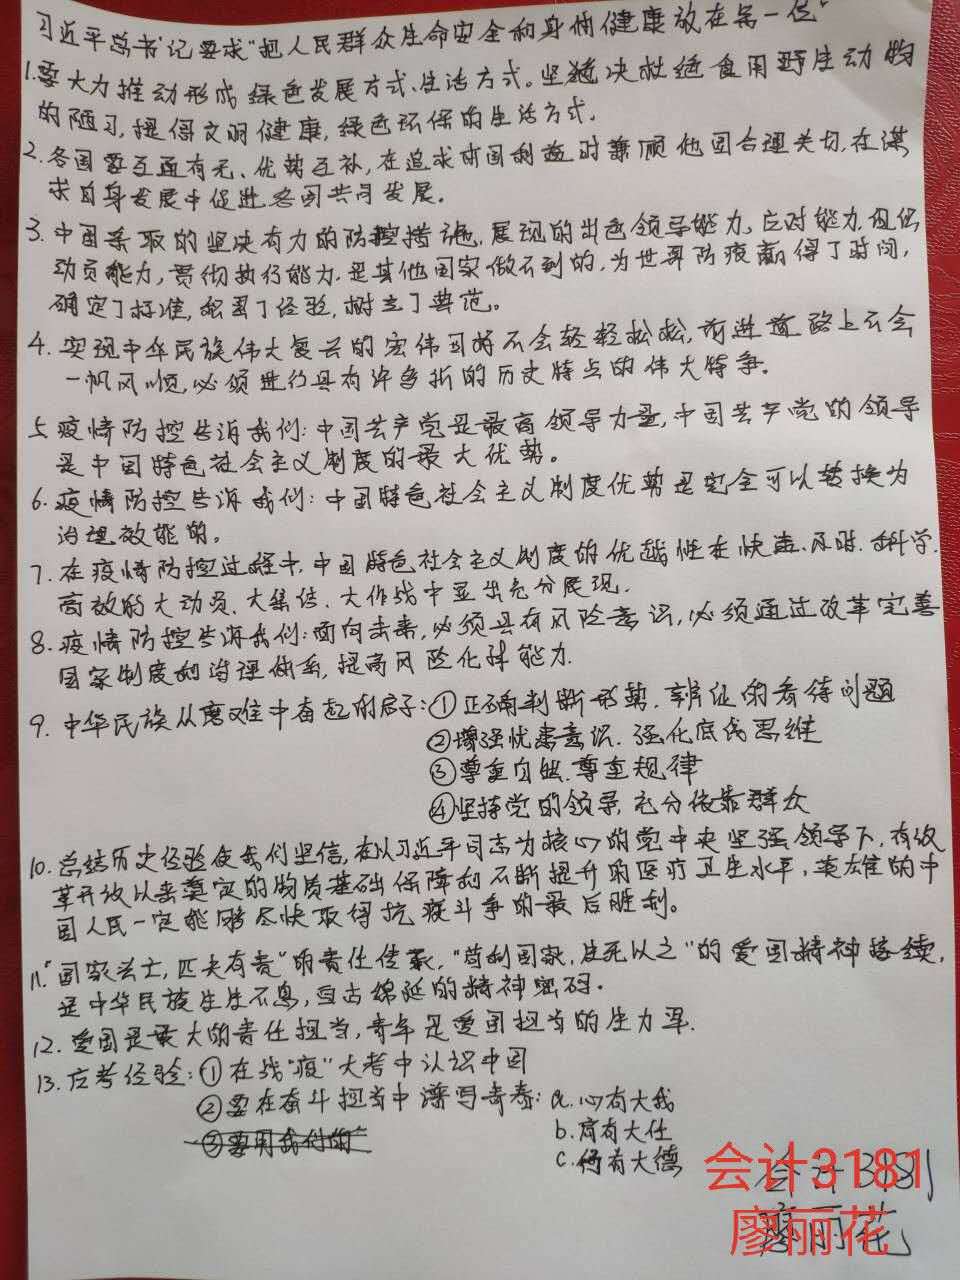 习近平总书记要求"把人民群众生命安全和身体健康放在第一位"
1.要大力推动形成绿色发展方式、生活方式。坚决杜绝食用野生动物
的陋习,提倡文明健康,绿色环保的生活方式.
2.各国要互通有无、优势互补,在追求本国利益时兼顾他国合理关切,在谋
求自身发展中促进各国共同发展。
3.中国采取的坚决有力的防控措施,展现的出色领导能力,应对能力,组织
动员能力,贯彻执行能力.是其他国家做不到的,为世界防疫赢得了时间,
确定了标准,积累了经验,树立了典范。
4.实现中华民族伟大复兴的宏伟目标不会轻轻松松,前进道路上不会
一帆风顺,必须进行具有许多新的历史特点的伟大特争。
5.疫情防控告诉我们:中国共产党是最高领导力量,中国共产党的领导
是中国特色社会主义制度的最大优势。
6.疫情防控告诉我们:中国特色社会主义制度优势是完全可以转换为
治理效能的。
7.在疫情防控过程中,中国特色社会主义制度的优越性在快速、及时、科学、
高效的大动员、大集结、大作战中显出充分展现.
8.疫情防控告诉我们:面向未来,必须具有风险意识,必须通过改革完善
国家制度和治理体系,提高风险化解能力.
9.中华民族从磨难中奋起的启示:①正确判断形势.辨证的看待问题
②增强忧患意识.强化底线思维
③尊重自然.尊重规律
④坚持党的领导,充分依靠群众
10.总结历史经验使我们坚信,在以习近平同志为核心的党中央坚强领导下,有改
革开放以来奠定的物质基础保障和不断提升的医疗卫生水平,英雄的中
国人民一定能够尽快取得抗疫斗争的最后胜利。
11."国家兴亡,匹夫有责"的责任传承,"苟利国家,生死以之"的爱国精神接续,
是中华民族生生不息,亘古绵延的精神密码.
12.爱国是最大的责任担当,青年是爱国担当的生力军.
13.应考经验:①在战"疫"大考中认识中国
②要在奋斗担当中谱写青春:a.心有大我
b.肩有大任
③要用我们的
c.行有大德
会计3181
会计3181
廖丽花
廖丽花